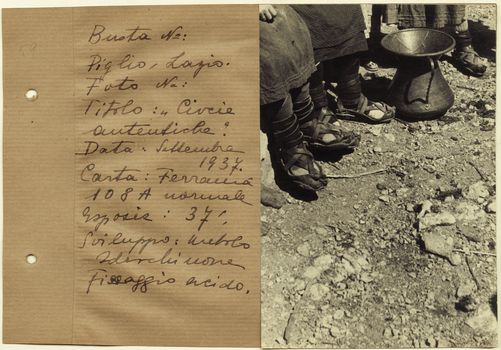 Busta No:
Piglio, Lazio.
Foto No:
Titolo: „Ciocie
autentiche".
Data: Settembre
1937.
Carta: Ferrania
108 A normale
Esposiz: 37",
Sviluppo: Metolo
Idrochinone
Fissaggio acido.